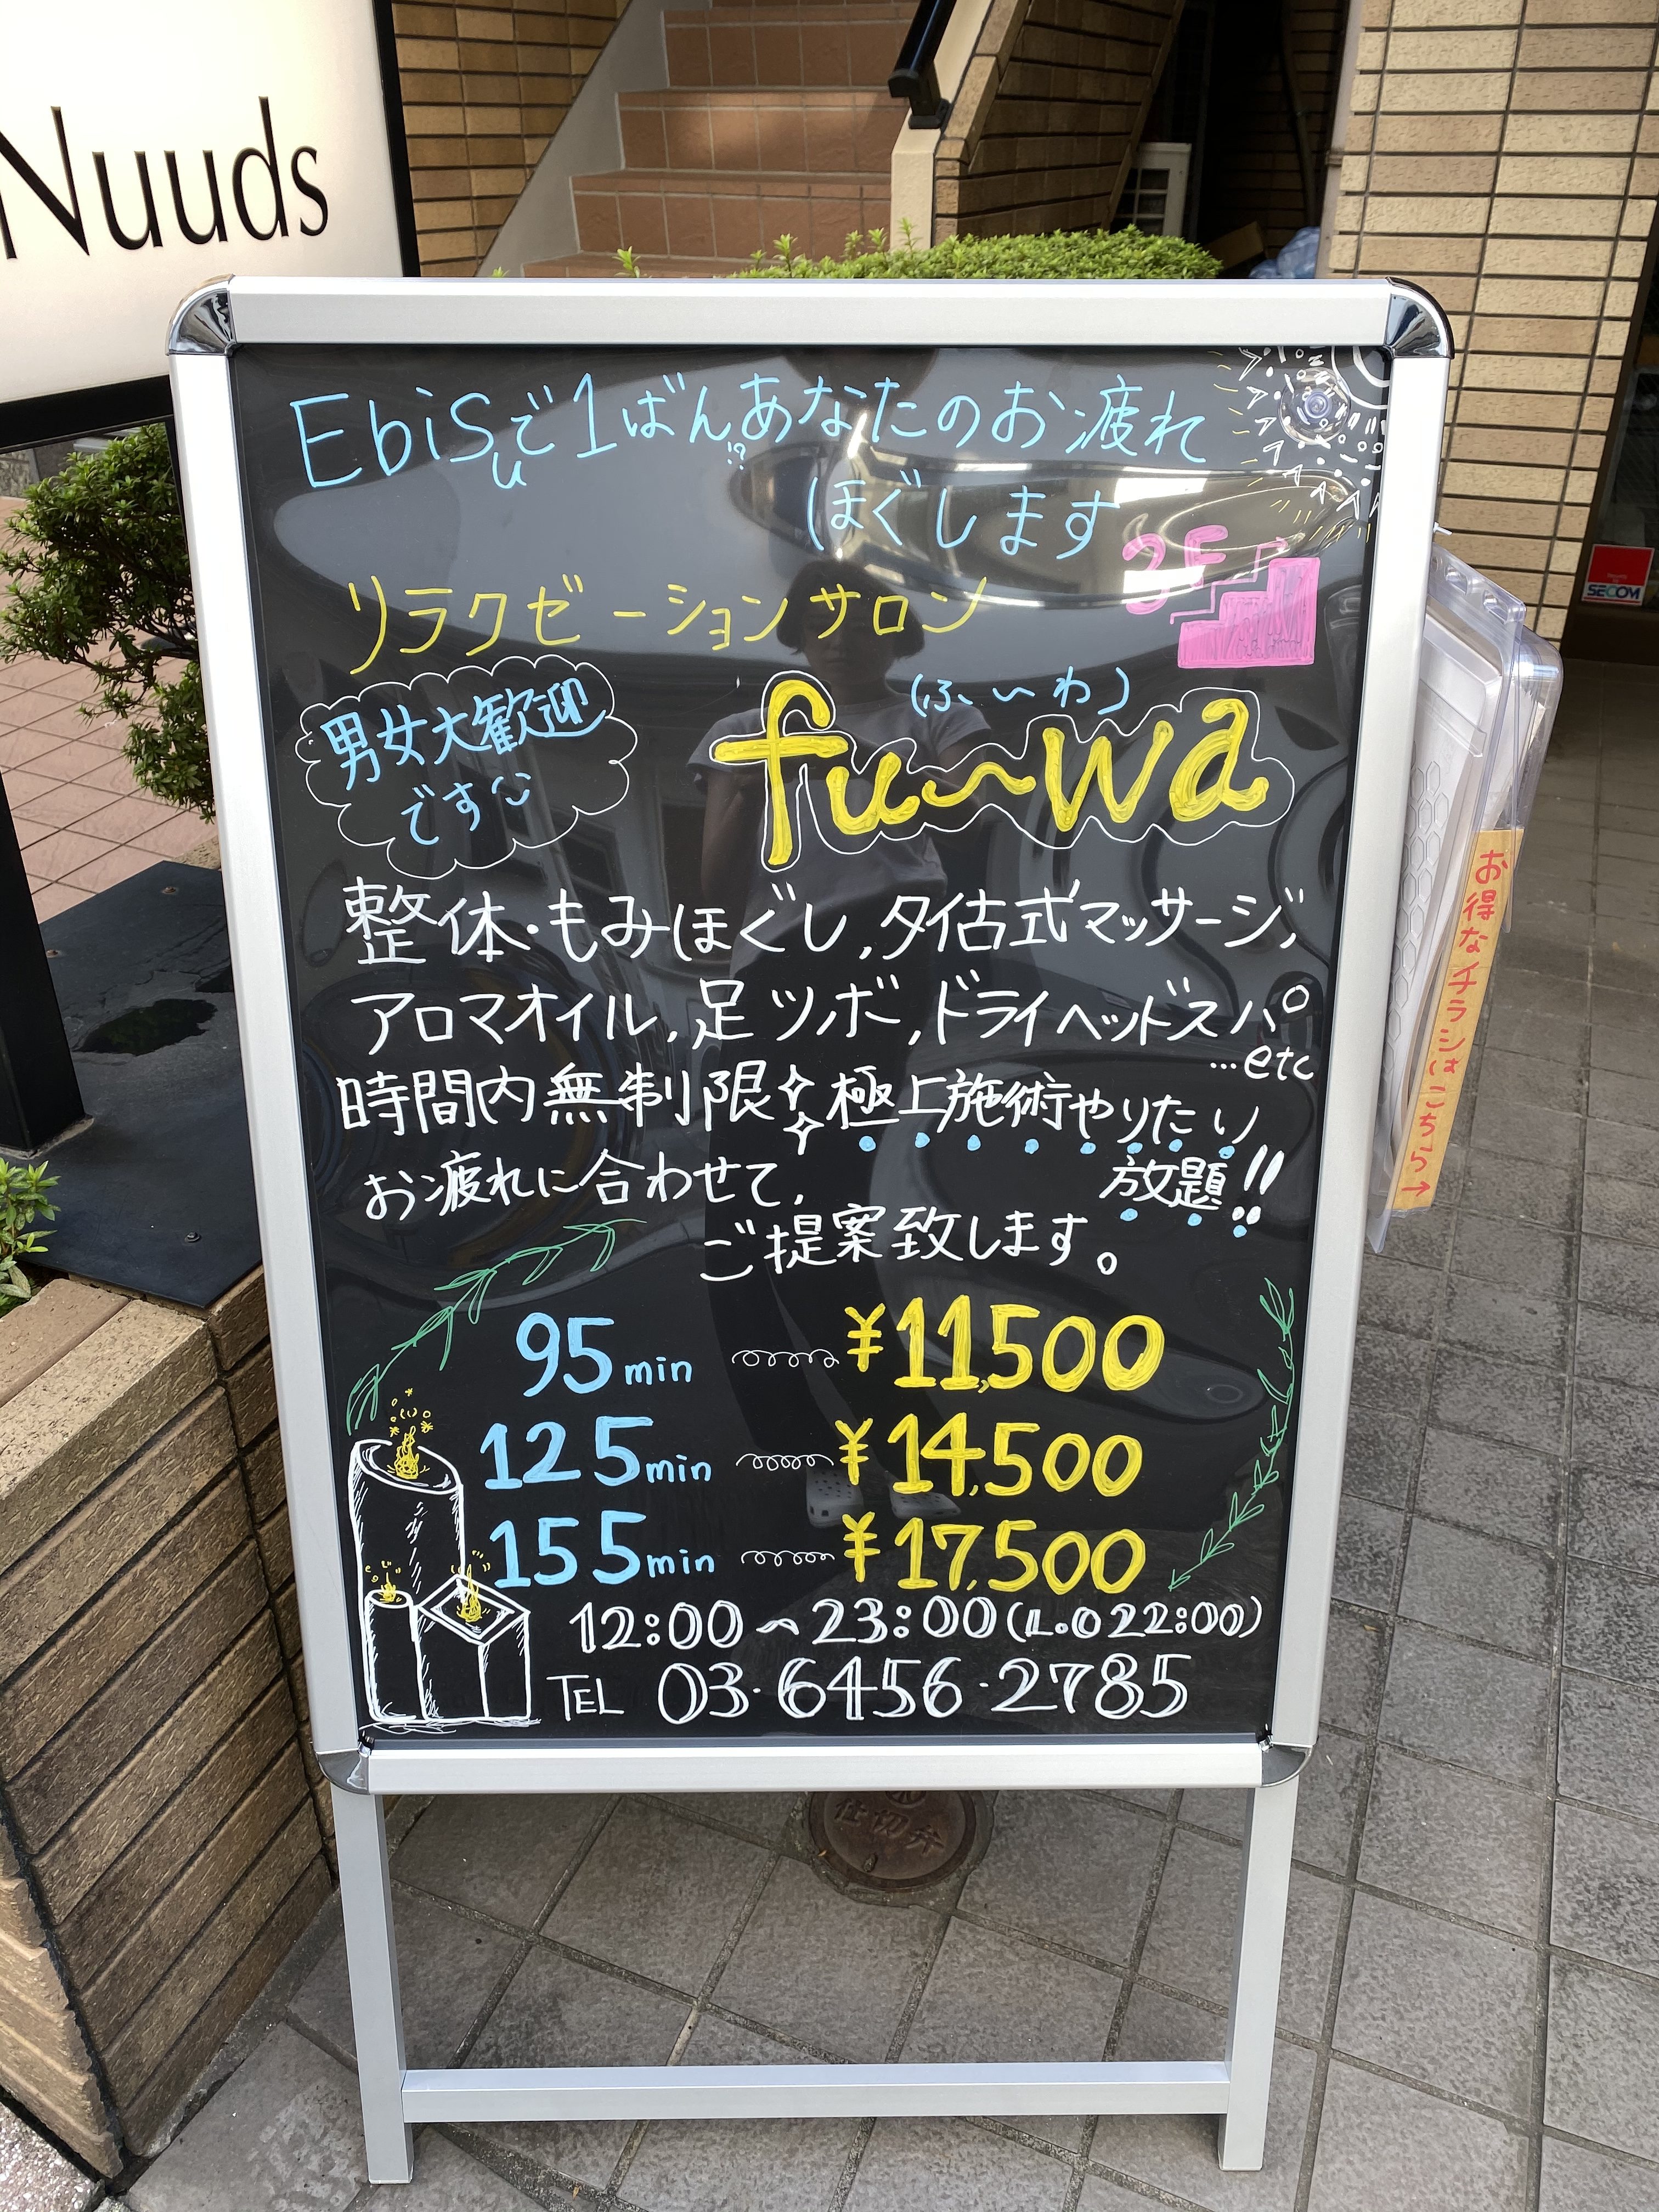 Nuuds
Ebisuで1ばん!?あなたのお疲れ
ほぐします
リラクゼーションサロン
男女大歓迎
です
(ふ〜わ)
fu~wa
整体・もみほぐし,タイ古式マッサージ,
アロマオイル,足ツボ,ドライヘッドスパ
…etc
時間内無制限 極上施術やりたい
放題!!
お疲れに合わせて,
ご提案致します。
95min ¥11,500
125min ¥14,500
155min ¥17,500
12:00~23:00(L.O 22:00)
TEL 03-6456-2785
お得なチラシはこちら→
SECOM
仕切弁